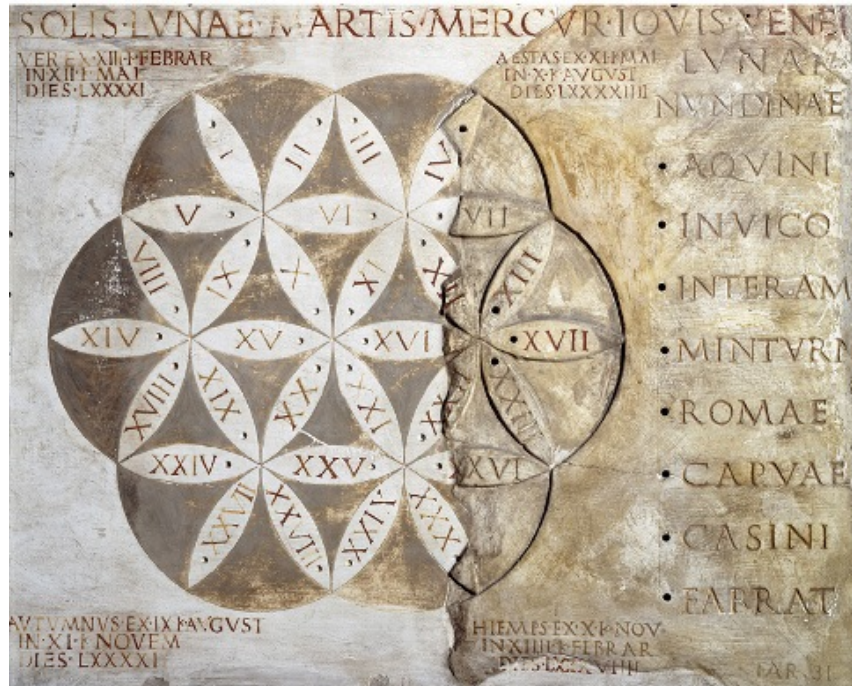 SOLIS·LVNAE·MARTIS·MERCVR·IOVIS·VENE
VER EX·XIII·K·FEBRAR
IN XII·K·MAI
DIES·LXXXXI
AESTAS EX·XI·K·MAI
IN·X·K·AVGVST
DIES·LXXXXIIII
LVNAR
NVNDINAE
AQVINI
INVICO
INTERAM
MINTVRN
ROMAE
CAPVAE
CASINI
FABRAT
I II III IV
V VI VII
VIII IX X XI XII XIII
XIV XV XVI XVII
XVIII XIX XX XXI XXIII
XXIV XXV XVI
XXVII XXVIII XXIX XXX
AVTVMNVS·EX·IX·K·AVGVST
IN·XI·K·NOVEM
DIES·LXXXXI
HIEMPS EX·X·K·NOV
IN XIIII·K·FEBRAR
DIES·LXXXVIIII